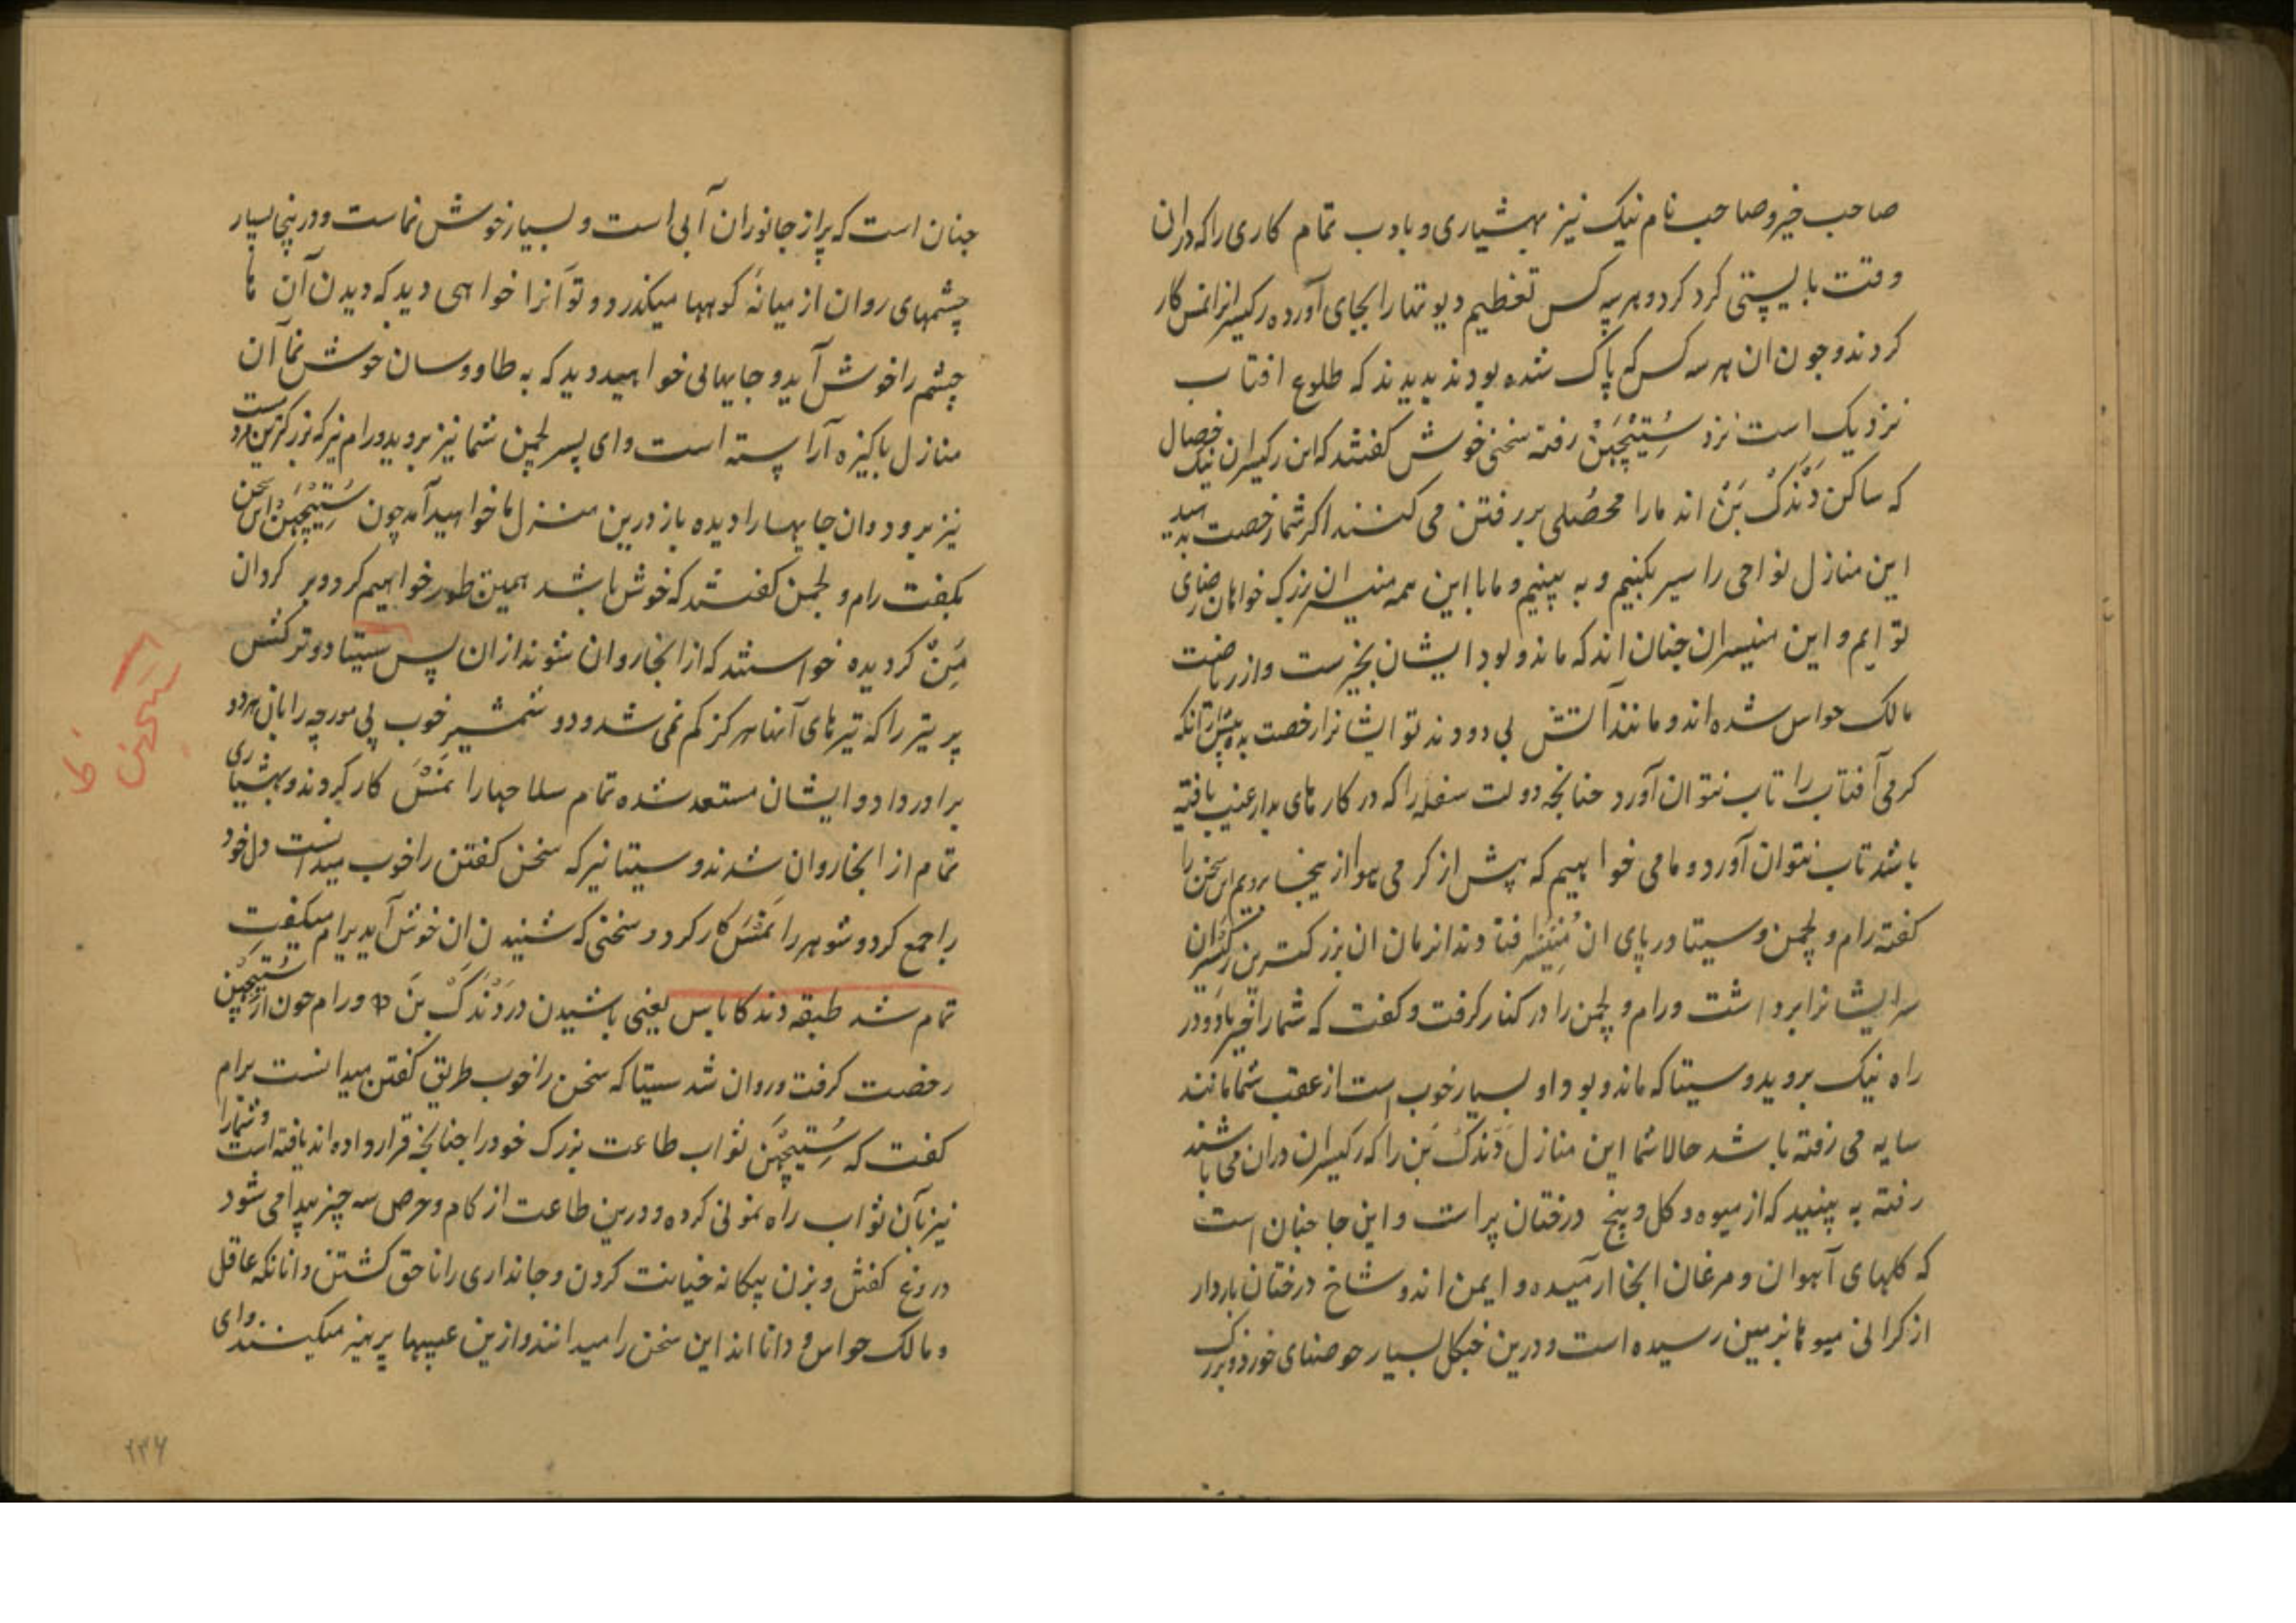 صاحب خیر و صاحب نام نیک نیز بهشیاری و بادب تمام کاری را که دران
وقت بایستی کرد کرد و هر سه کس تعظیم دیوتها را بجای آورده رکیسرانرا نمس کار
کردند و چون ان هر سه کس که پاک شده بودند بدیدند که طلوع افتاب
نزدیک است نزد سُتِیچَهن رفته سخنی خوش گفتند که این رکیسران نیک خصال
که ساکن دَندَک بَن اند مارا محصلی بر رفتن می کنند اکر شما رخصت بدهید
این منازل نواحی را سیر بکنیم و به بینیم و ما با این همه منیسران بزرک خواهان رضای
تو ایم و این منیسران چنان اند که ماند و بود ایشان بخیرست و از ریاضت
مالک حواس شده اند و مانند آتش بی دودند تو ایشانرا رخصت بده پیش از آنکه
کرمی آفتاب را تاب نتوان آورد چنانچه دولت سفله را که در کارهای بد از غیب یافته
باشد تاب نتوان آورد و ما می خواهیم که پیش از کرمی هوا از ینجا برویم این سخن را
گفته رام و لچمن و سیتا در پای ان مُنیسر افتادند انزمان ان بزرکترین رکیسران
سر ایشانرا برداشت و رام و لچمن را در کنار کرفت و کفت که شمارا خیر باد و در
راه نیک بروید و سیتا که ماند و بود او بسیار خوب است از عقب شما مانند
سایه می رفته باشد حالا شما این منازل دَندَک بَن را که رکیسران دران می باشند
رفته به بینید که از میوه و کل و بیخ درختان پر است و این جا چنان است
که کلهای آهوان و مرغان انجا ارمیده و ایمن اند و شاخ درختان باردار
از کرانی میوها بزمین رسیده است و درین جنکل بسیار حوضهای خورد و بزرک
چنان است که پر از جانوران آبی است و بسیار خوش نماست و درینجا بسیار
چشمهای روان از میانه کوهها میکذرد و تو آنرا خواهی دید که دیدن آن ها
چشم را خوش آید و جایهائی خواهید دید که به طاووسان خوش نما آن
منازل پاکیزه آراسته است و ای پسر لچمن شما نیز بروید و رام نیز که بزرکترین مرد ست
نیز برود و ان جایها را دیده باز درین منزل ما خواهید آمد چون سُتِیچَهن این سخن
بکفت رام و لچمن کفتند که خوش باشد همین طور خواهیم کرد و بر کردان
مَن کردیده خواستند که از انجا روان شوند از ان پس سیتا دو ترکش
پر تیر را که تیرهای آنها هرکز کم نمی شد و دو شمشیر خوب پی مورچه را بان هر دو
برادر داد و ایشان مستعد شده تمام سلاحها را نمَسَ کار کردند و بهشیاری
تمام از انجا روان شدند و سیتا نیز که سخن کفتن را خوب میدانست دل خود
را جمع کرد و شوهر را نمَسَ کار کرد و سخنی که شنیدن ان خوش آید برام میکفت
تمام شد طبقه دندکا باس یعنی باشیدن در دَندَک بَن و رام چون از سُتِیچَهن
رخصت کرفت و روان شد سیتا که سخن را خوب طریق کفتن میدانست برام
کفت که سُتِیچَهن ثواب طاعت بزرک خود را چنانچه قرار داده اند یافته است و شما را
نیز بآن ثواب راه نمونی کرده و درین طاعت از کام و حرص سه چیز پیدا می شود
دروغ کفتن و بزن بیکانه خیانت کردن و جانداری را ناحق کشتن و انانکه عاقل
و مالک حواس و دانا اند این سخن را میدانند و ازین عیبها پرهیز میکینند و ای
۲۳۶